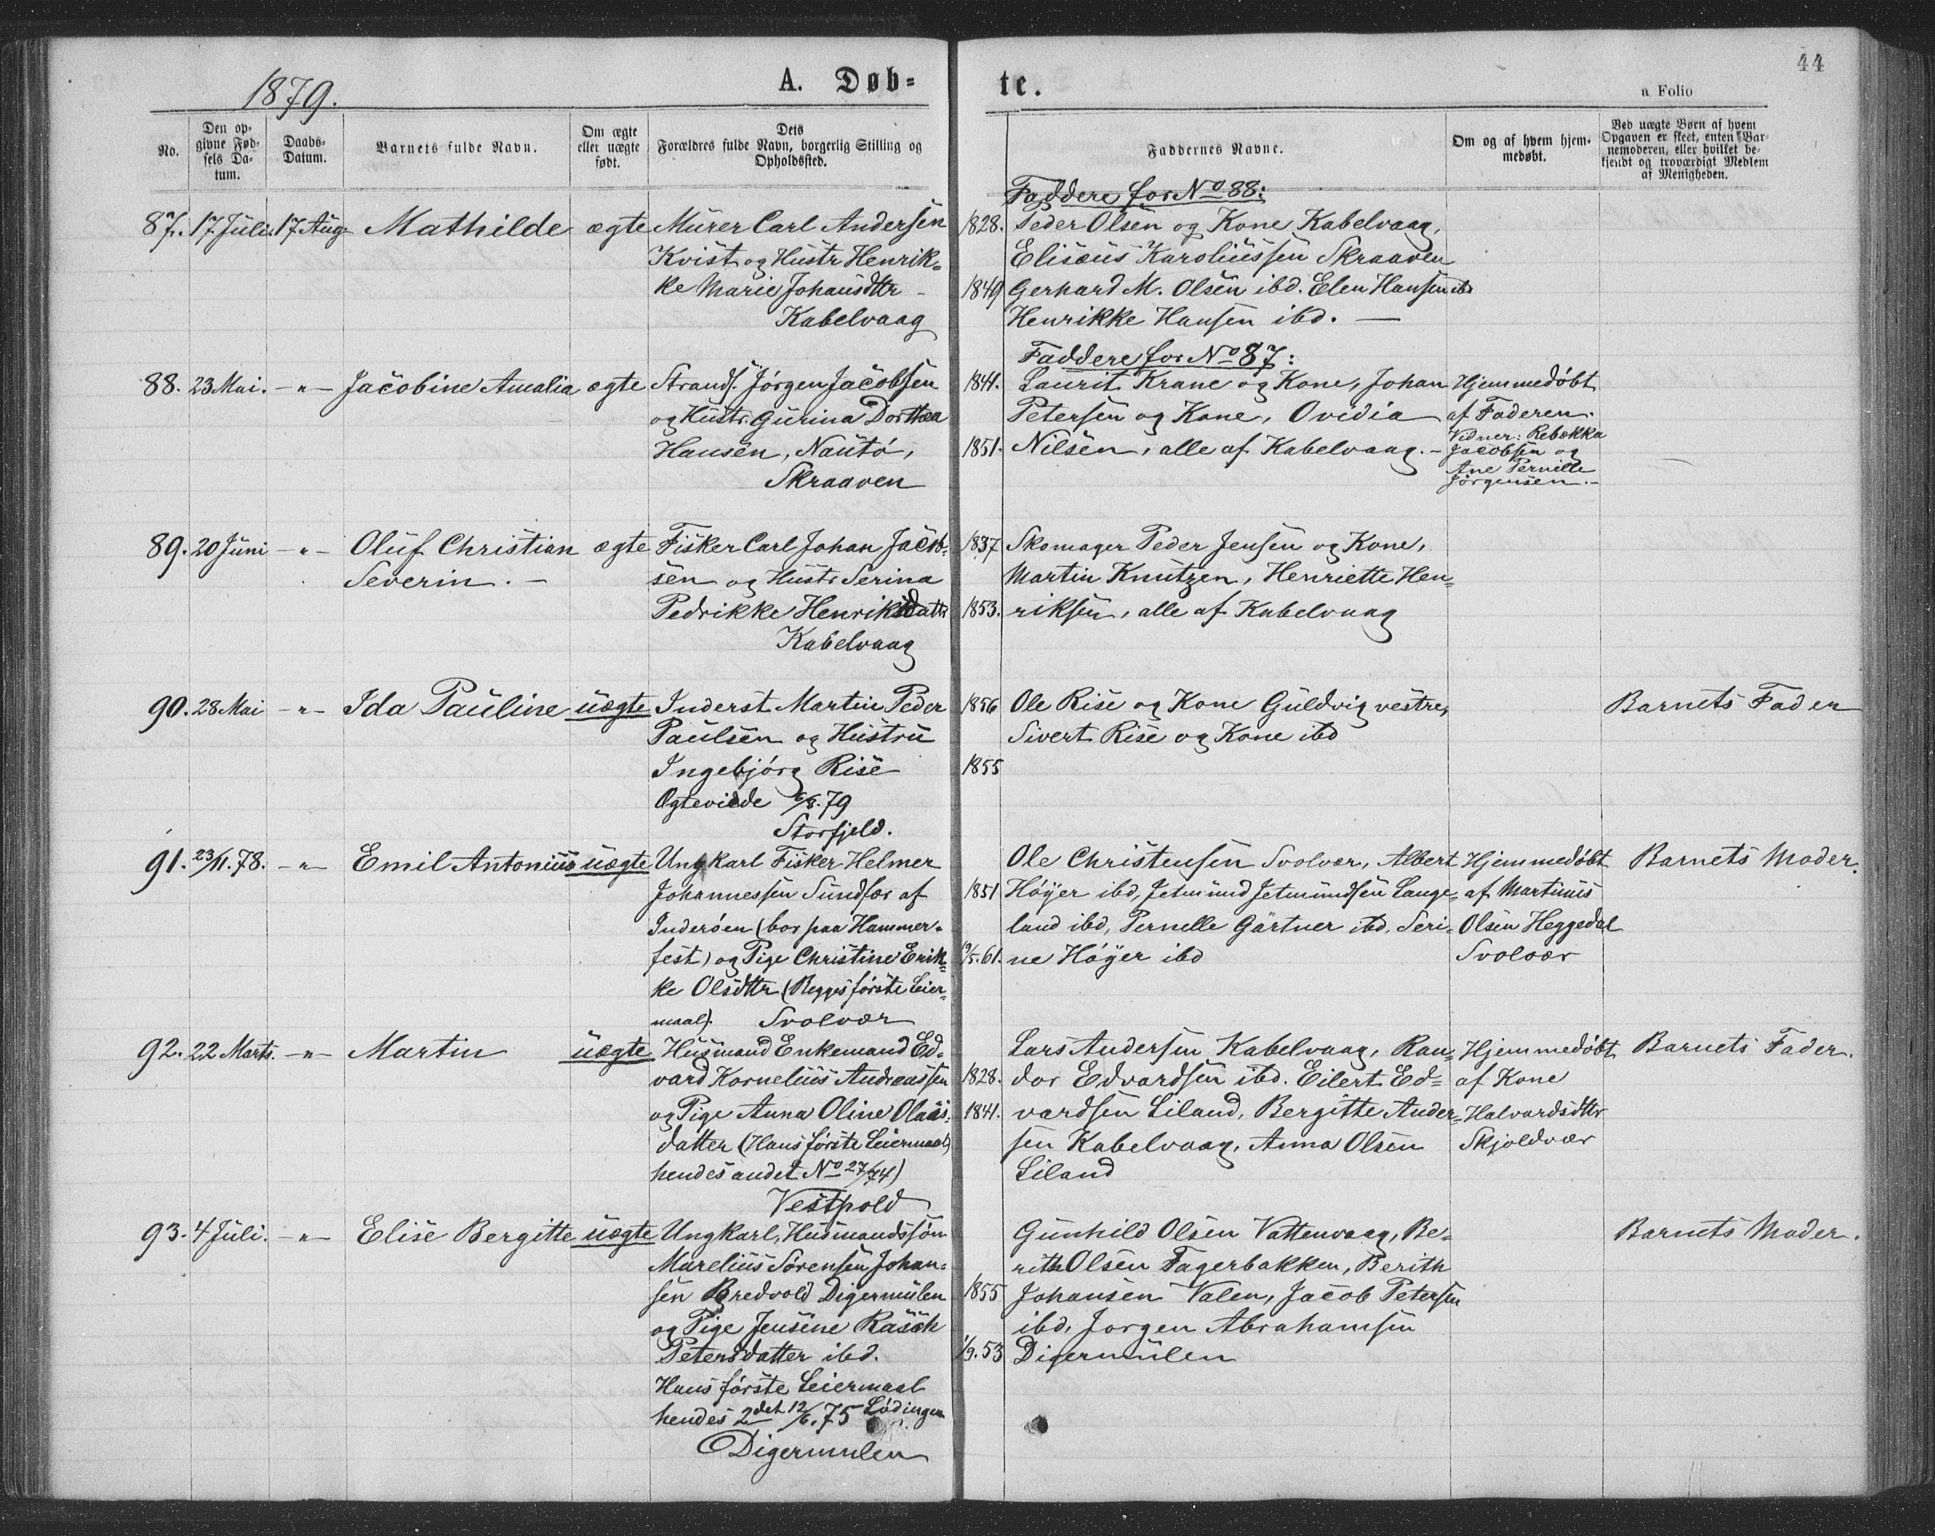 1879.
A. Døb-
te.
44
a Folio
No.
Den op-
givne Fød-
sels Da-
tum.
Daabs-
Datum.
Barnets fulde Navn.
Om ægte
eller uægte
født.
Dets
Forældres fulde Navn, borgerlig Stilling og
Opholdssted.
Faddernes Navne.
Om og af hvem hjem-
medøbt.
Ved uægte Børn af hvem
Opgaven er skeet, enten Bar-
nemoderen, eller hvilket be-
kjendt og troværdigt Medlem
af Menigheden.
87. 17 Juli 17 Aug Mathilde ægte Murer Carl Andersen
Kvist og Hustr Henrik-
ke Marie Johansdttr -
Kabelvaag
Faddere for No 88:
1828. Peder Olsen og Kone Kabelvaag,
Elisæus Karoliussen Skraaven
1849 Gerhard M. Olsen ibd. Elen Hansen ibd
Henrikke Hansen ibd. —
88. 23 Mai. -"- Jacobine Amalia ægte Strands. Jørgen Jacobsen
og Hustr. Gurina Dorthea
Hansen, Nautø,
Skraaven
Faddere for No 87:
1841. Laurit Krane og Kone, Johan
Petersen og Kone, Ovidia
1851. Nilsen, alle af Kabelvaag. -
Hjemmedøbt
af Faderen.
Vidner: Rebekka
Jacobsen og
Ane Pernille
Jørgensen. -
89. 20 Juni -"- Oluf Christian ægte Fisker Carl Johan Jacob-
Severin. -
sen og Hustr Serina
Pedrikke Henriksdattr
Kabelvaag
1837 Skomager Peder Jensen og Kone,
Martin Knutzen, Henriette Hen-
1853. riksen, alle af Kabelvaag
90. 28 Mai -"- Ida Pauline uægte Inderst Martin Peder
Paulsen og Hustru
Ingebjørg Rise
Ægteviede 6/8.79
Storfjeld.
1856 Ole Rise og Kone Guldvig vestre,
Sivert Rise og Kone ibd
1855
Barnets Fader
91. 23/11.78. -"- Emil Antonius uægte Ungkarl Fisker Helmer
Johannessen Sundfær af
Inderøen (bor paa Hammer-
fest) og Pige Christine Erik-
ke Olsdttr (Begges første Leier-
maal). Svolvær
Ole Christensen Svolvær, Albert
1851 Høyer ibd, Jetmund Jetmundsen Lange-
land ibd, Pernelle Gärtner ibd, Seri-
19/5.61. ne Høyer ibd
Hjemmedøbt
af Martinus
Olsen Heggedal
Svolvær
Barnets Moder.
92. 22 Marts. -"- Martin uægte Husmand Enkemand Ed-
vard Kornelius Andreassen
og Pige Anna Oline Olaus-
datter (Hans første Leiermaal
hendes andet No 27/74)
Vestpold
Lars Andersen Kabelvaag, Ran-
1828. dor Edvardsen ibd. Eilert Ed-
1841. vardsen Liland, Bergitte Ander-
sen Kabelvaag, Anna Olsen
Liland
Hjemmedøbt
af Kone
Halvardsdttr
Skjoldvær
Barnets Fader.
93. 4 Juli. -"- Elise Bergitte uægte Ungkarl, Husmandssøn
Marelius Sørensen Johan-
sen Bredvold Digermulen
og Pige Jensine Rasch
Petersdatter ibd.
Hans første Leiermaal
hendes 2det 12/6.75 Lødingen
Digermulen
Gunhild Olsen Vattenvaag, Be-
rith Olsen Fagerbakken, Berith
1855 Johansen Valen, Jacob Petersen
ibd, Jørgen Abrahamsen
1/9.53 Digermulen
Barnets Moder.